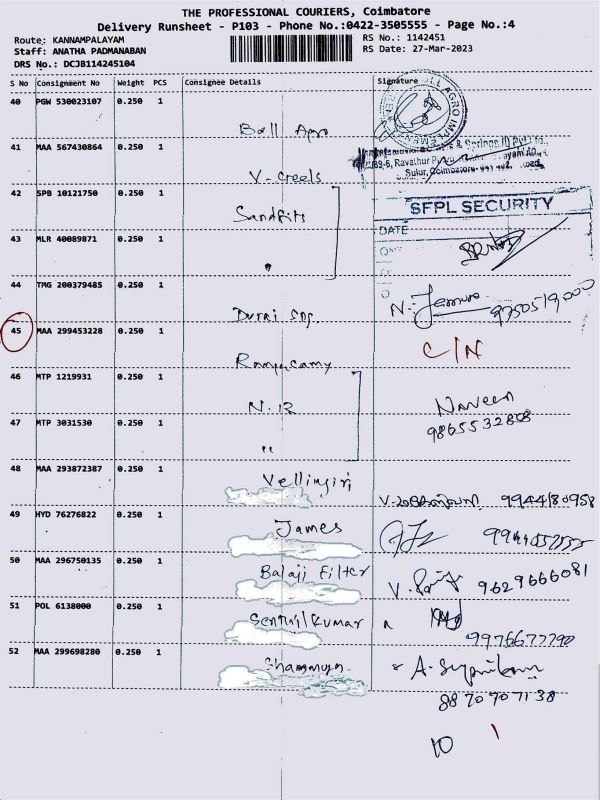 THE PROFESSIONAL COURIERS, Coimbatore
Delivery Runsheet - P103 - Phone No.:0422-3505555 - Page No.:4
Route: KANNAMPALAYAM
RS No.: 1142451
Staff: ANATHA PADMANABAN
RS Date: 27-Mar-2023
DRS No.: DCJB114245104
S No Consignment No Weight PCS Consignee Details Signature
40 PGW 530023107 0.250 1
Ball Agro
41 MAA 567430864 0.250 1
V-creels
42 SPB 10121750 0.250 1
Sandfits
SFPL SECURITY
DATE
43 MLR 40089871 0.250 1
44 TMG 200379485 0.250 1
9750519000
45 MAA 299453228 0.250 1
C/N
46 MTP 1219931 0.250 1
N.12
Naveen
9865532808
47 MTP 3031530 0.250 1
"
48 MAA 293872387 0.250 1
Vellingiri
9944180958
49 HYD 76276822 0.250 1
James
50 MAA 296750135 0.250 1
Balaji Filter
9629666081
51 POL 6138000 0.250 1
Senthilkumar
52 MAA 299698280 0.250 1
8870907138
10